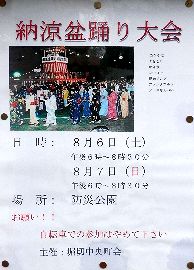 納涼盆踊り大会
日 時： ８月６日（土）
午後６時～８時３０分
８月７日（日）
午後６時～８時３０分
場 所： 防災公園
お願い！！
自転車での参加はやめて下さい
主催：堀切中央町会